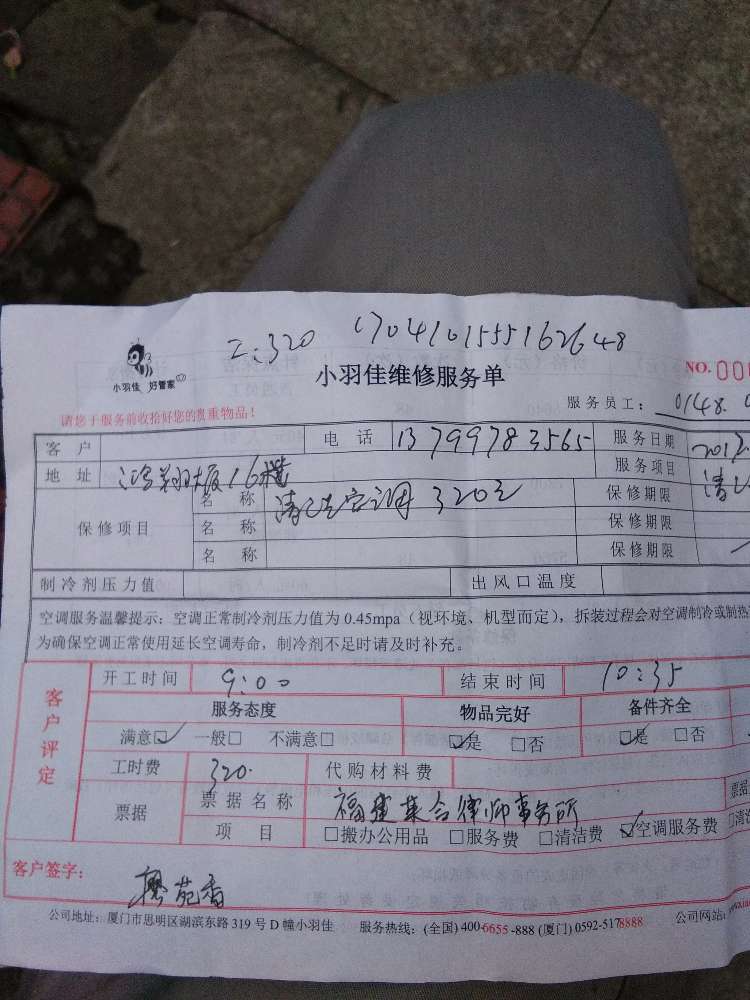 工:320 170410155162648
小羽佳 好管家
小羽佳维修服务单
NO. 000
服务员工: 0148.
请您于服务前收拾好您的贵重物品!
客户 电话 13799783565 服务日期 2017.
地址 鸿翔大厦16楼 服务项目 清洗
保修项目 名称 清洗空调 320元 保修期限
名称 保修期限
名称 保修期限
制冷剂压力值 出风口温度
空调服务温馨提示:空调正常制冷剂压力值为0.45mpa(视环境、机型而定),拆装过程会对空调制冷或制热
为确保空调正常使用延长空调寿命,制冷剂不足时请及时补充。
客户评定
开工时间 9:00 结束时间 10:35
服务态度 物品完好 备件齐全
满意☑ 一般□ 不满意□ ☑是 □否 ☑是 □否
工时费 320. 代购材料费
票据 票据名称 福建集合律师事务所 票据
项目 □搬办公用品 □服务费 □清洁费 ☑空调服务费 □清洗
客户签字:
公司地址:厦门市思明区湖滨东路319号D幢小羽佳 服务热线:(全国)400-6655-888(厦门)0592-5178888 公司网站: